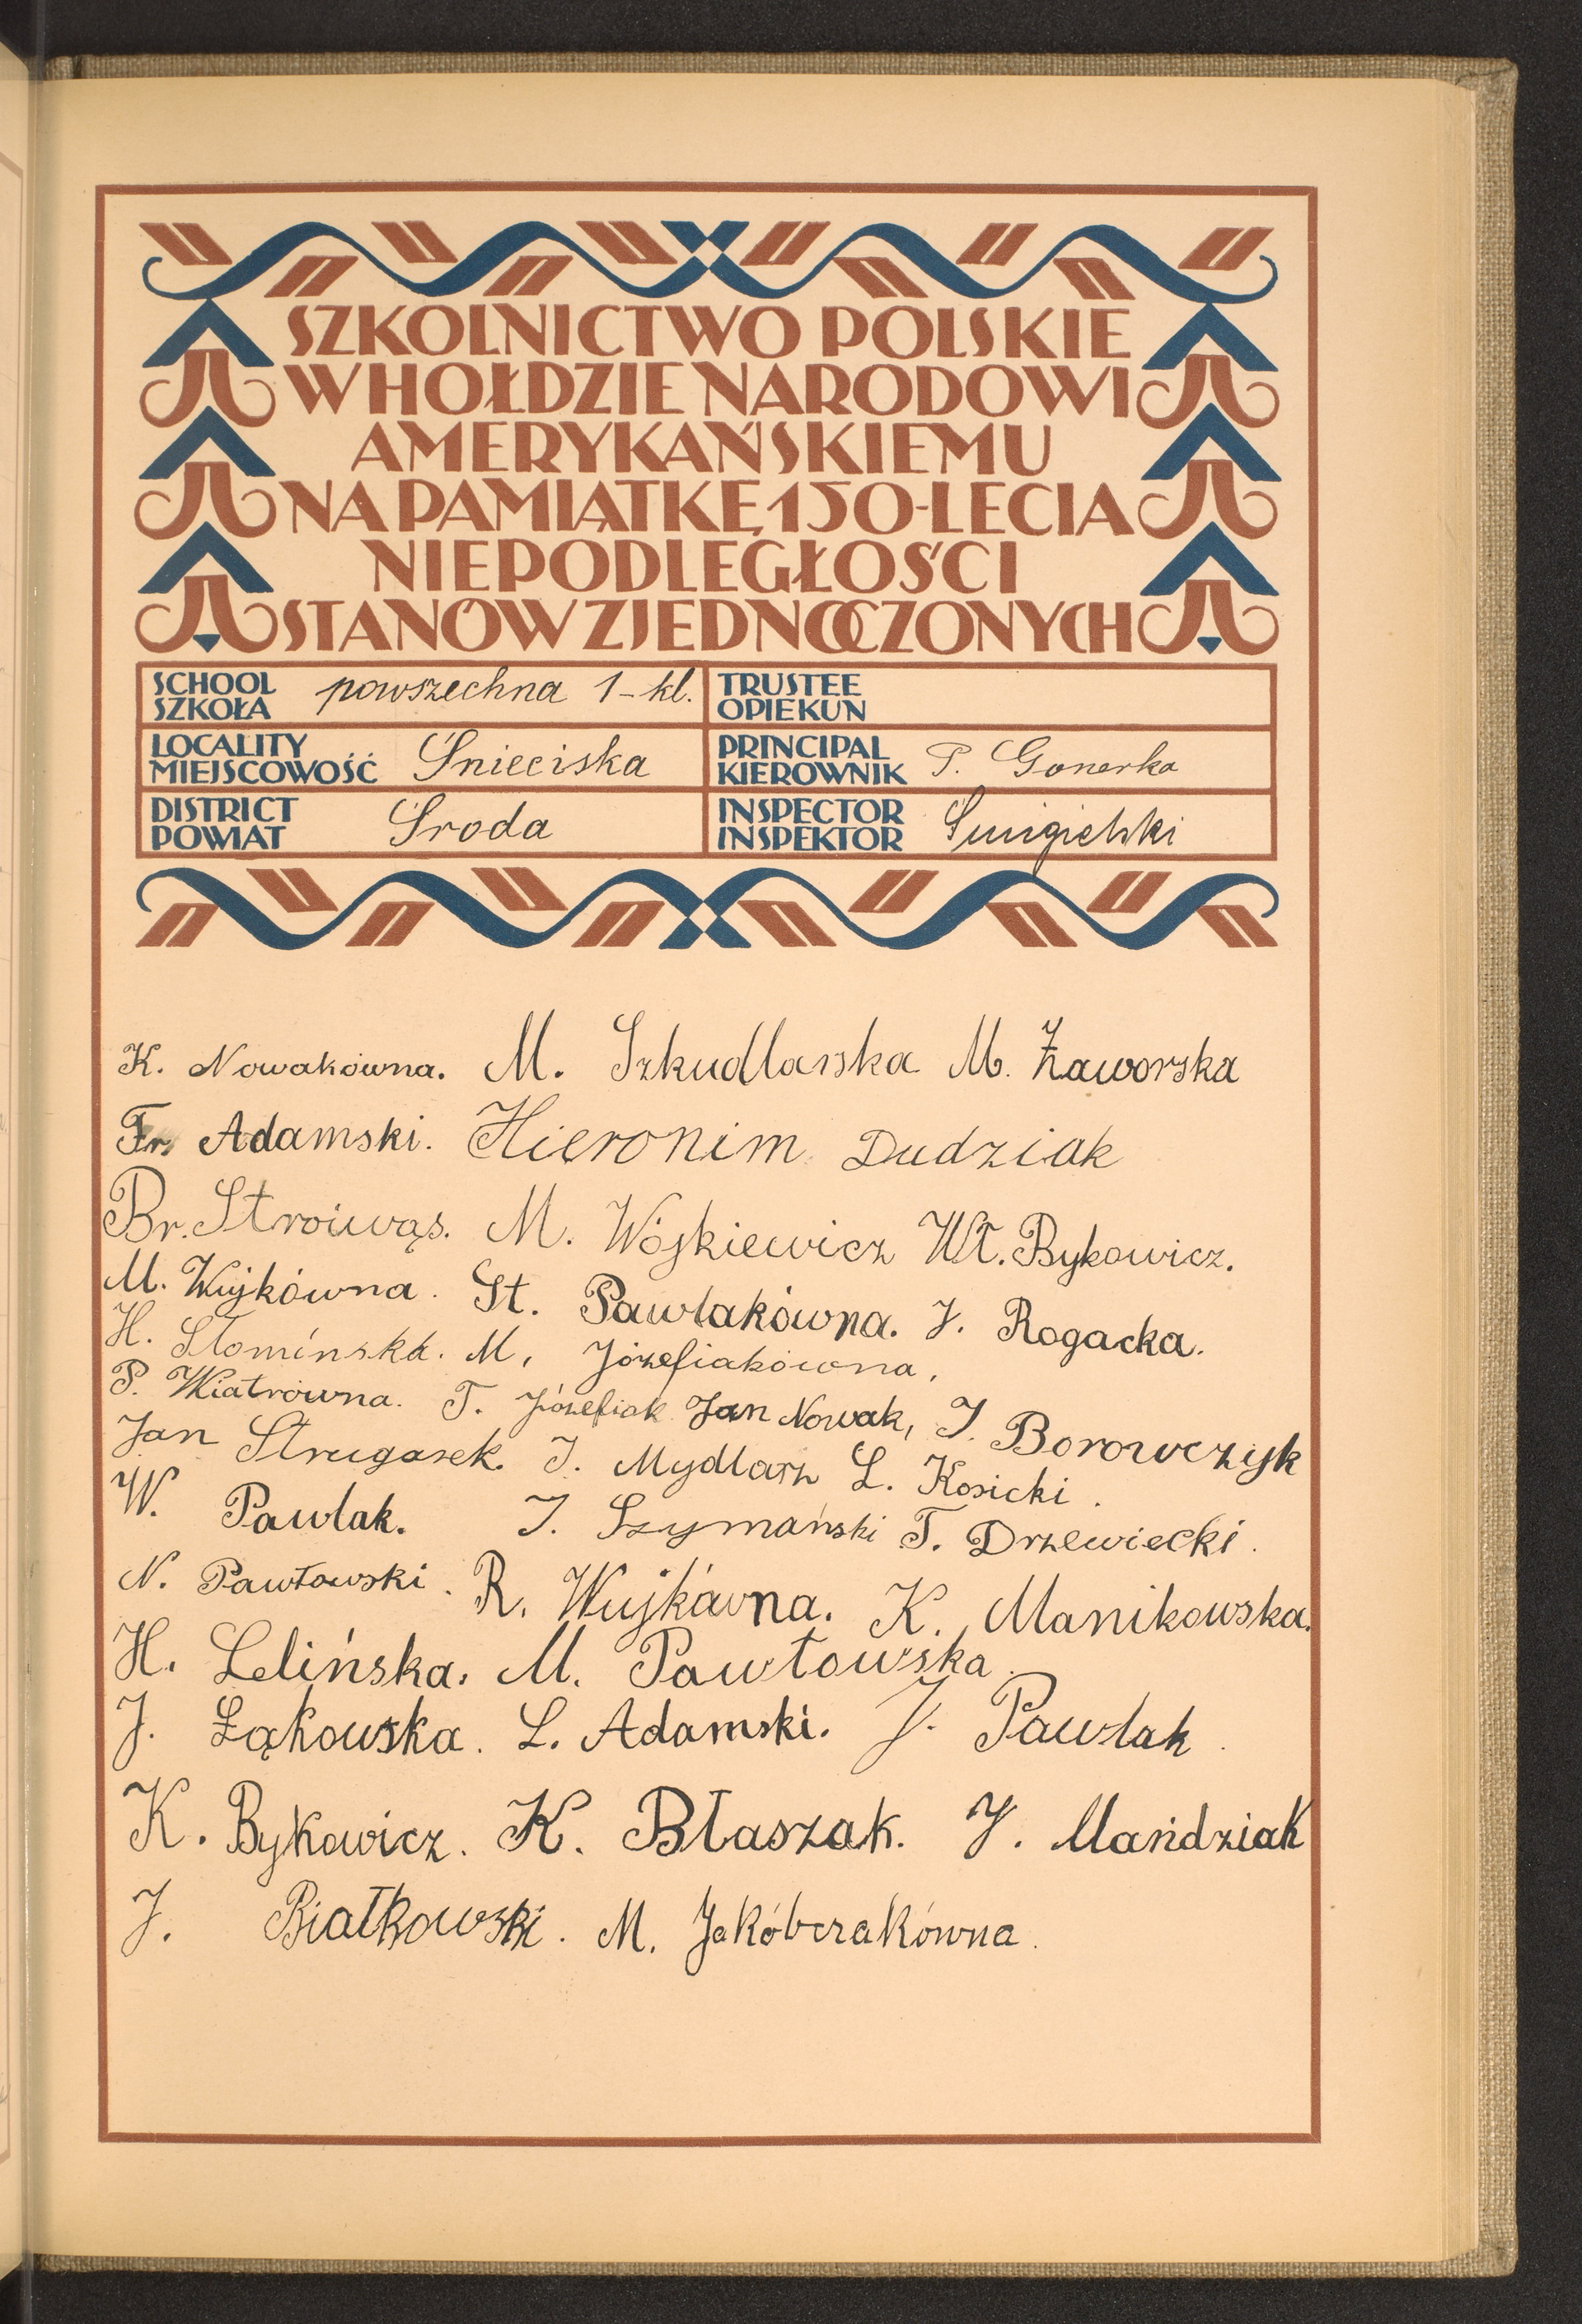 SZKOLNICTWO POLSKIE
W HOŁDZIE NARODOWI
AMERYKAŃSKIEMU
NA PAMIĄTKĘ 150-LECIA
NIEPODLEGŁOŚCI
STANÓW ZJEDNOCZONYCH
SCHOOL
SZKOŁA powszechna 1-kl.
TRUSTEE
OPIEKUN
LOCALITY
MIEJSCOWOŚĆ Śnieciska
PRINCIPAL
KIEROWNIK P. Gonerka
DISTRICT
POWIAT Środa
INSPECTOR
INSPEKTOR Śmigielski
K. Nowakówna. M. Szkudlarska M. Zaworska
Fr. Adamski. Hieronim Dudziak
Br. Stroiwąs. M. Wójkiewicz Wł. Bykowicz.
M. Wujkówna. St. Pawlakówna. J. Rogacka.
H. Słomińska. M. Józefiakówna,
P. Wiatrówna. T. Józefiak Jan Nowak, J. Borowczyk
Jan Strugarek. J. Mydlarz L. Kosicki.
W. Pawlak. J. Szymański T. Drzewiecki.
N. Pawłowski. R. Wujkówna. K. Manikowska.
H. Lelińska. M. Pawłowska.
J. Łąkowska. L. Adamski. J. Pawlak.
K. Bykowicz. K. Błaszak. J. Mańdziak
J. Białkowski. M. Jakóbczakówna.